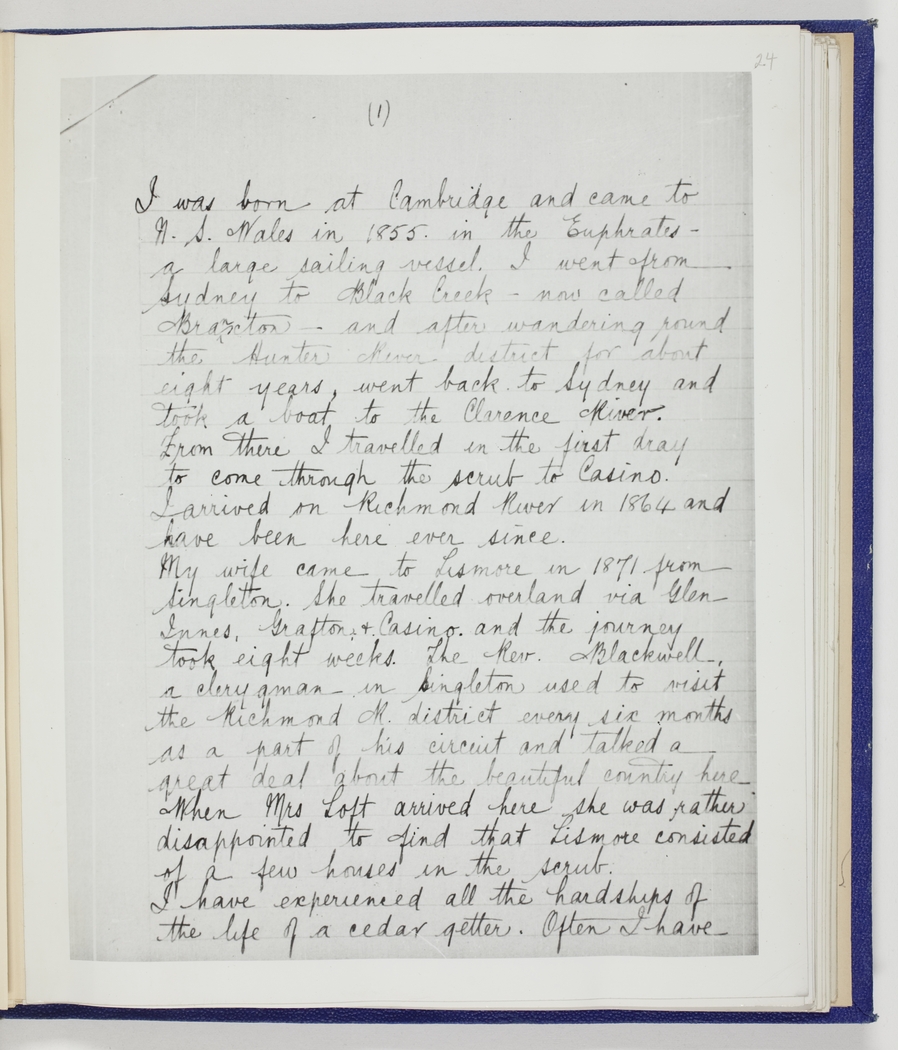 24
(1)
I was born at Cambridge and came to
N. S. Wales in 1855. in the Euphrates -
a large sailing vessel. I went from
Sydney to Black Creek - now called
Branxton - and after wandering round
the Hunter River district for about
eight years, went back to Sydney and
took a boat to the Clarence River.
From there I travelled in the first dray
to come through the scrub to Casino.
I arrived on Richmond River in 1864 and
have been here ever since.
My wife came to Lismore in 1871 from
Singleton. She travelled overland via Glen
Innes, Grafton, & Casino. and the journey
took eight weeks. The Rev. Blackwell,
a clerygman in Singleton used to visit
the Richmond R. district every six months
as a part of his circuit and talked a
great deal about the beautiful country here
When Mrs Loft arrived here she was rather
disappointed to find that Lismore consisted
of a few houses in the scrub.
I have experienced all the hardships of
the life of a cedar getter. Often I have